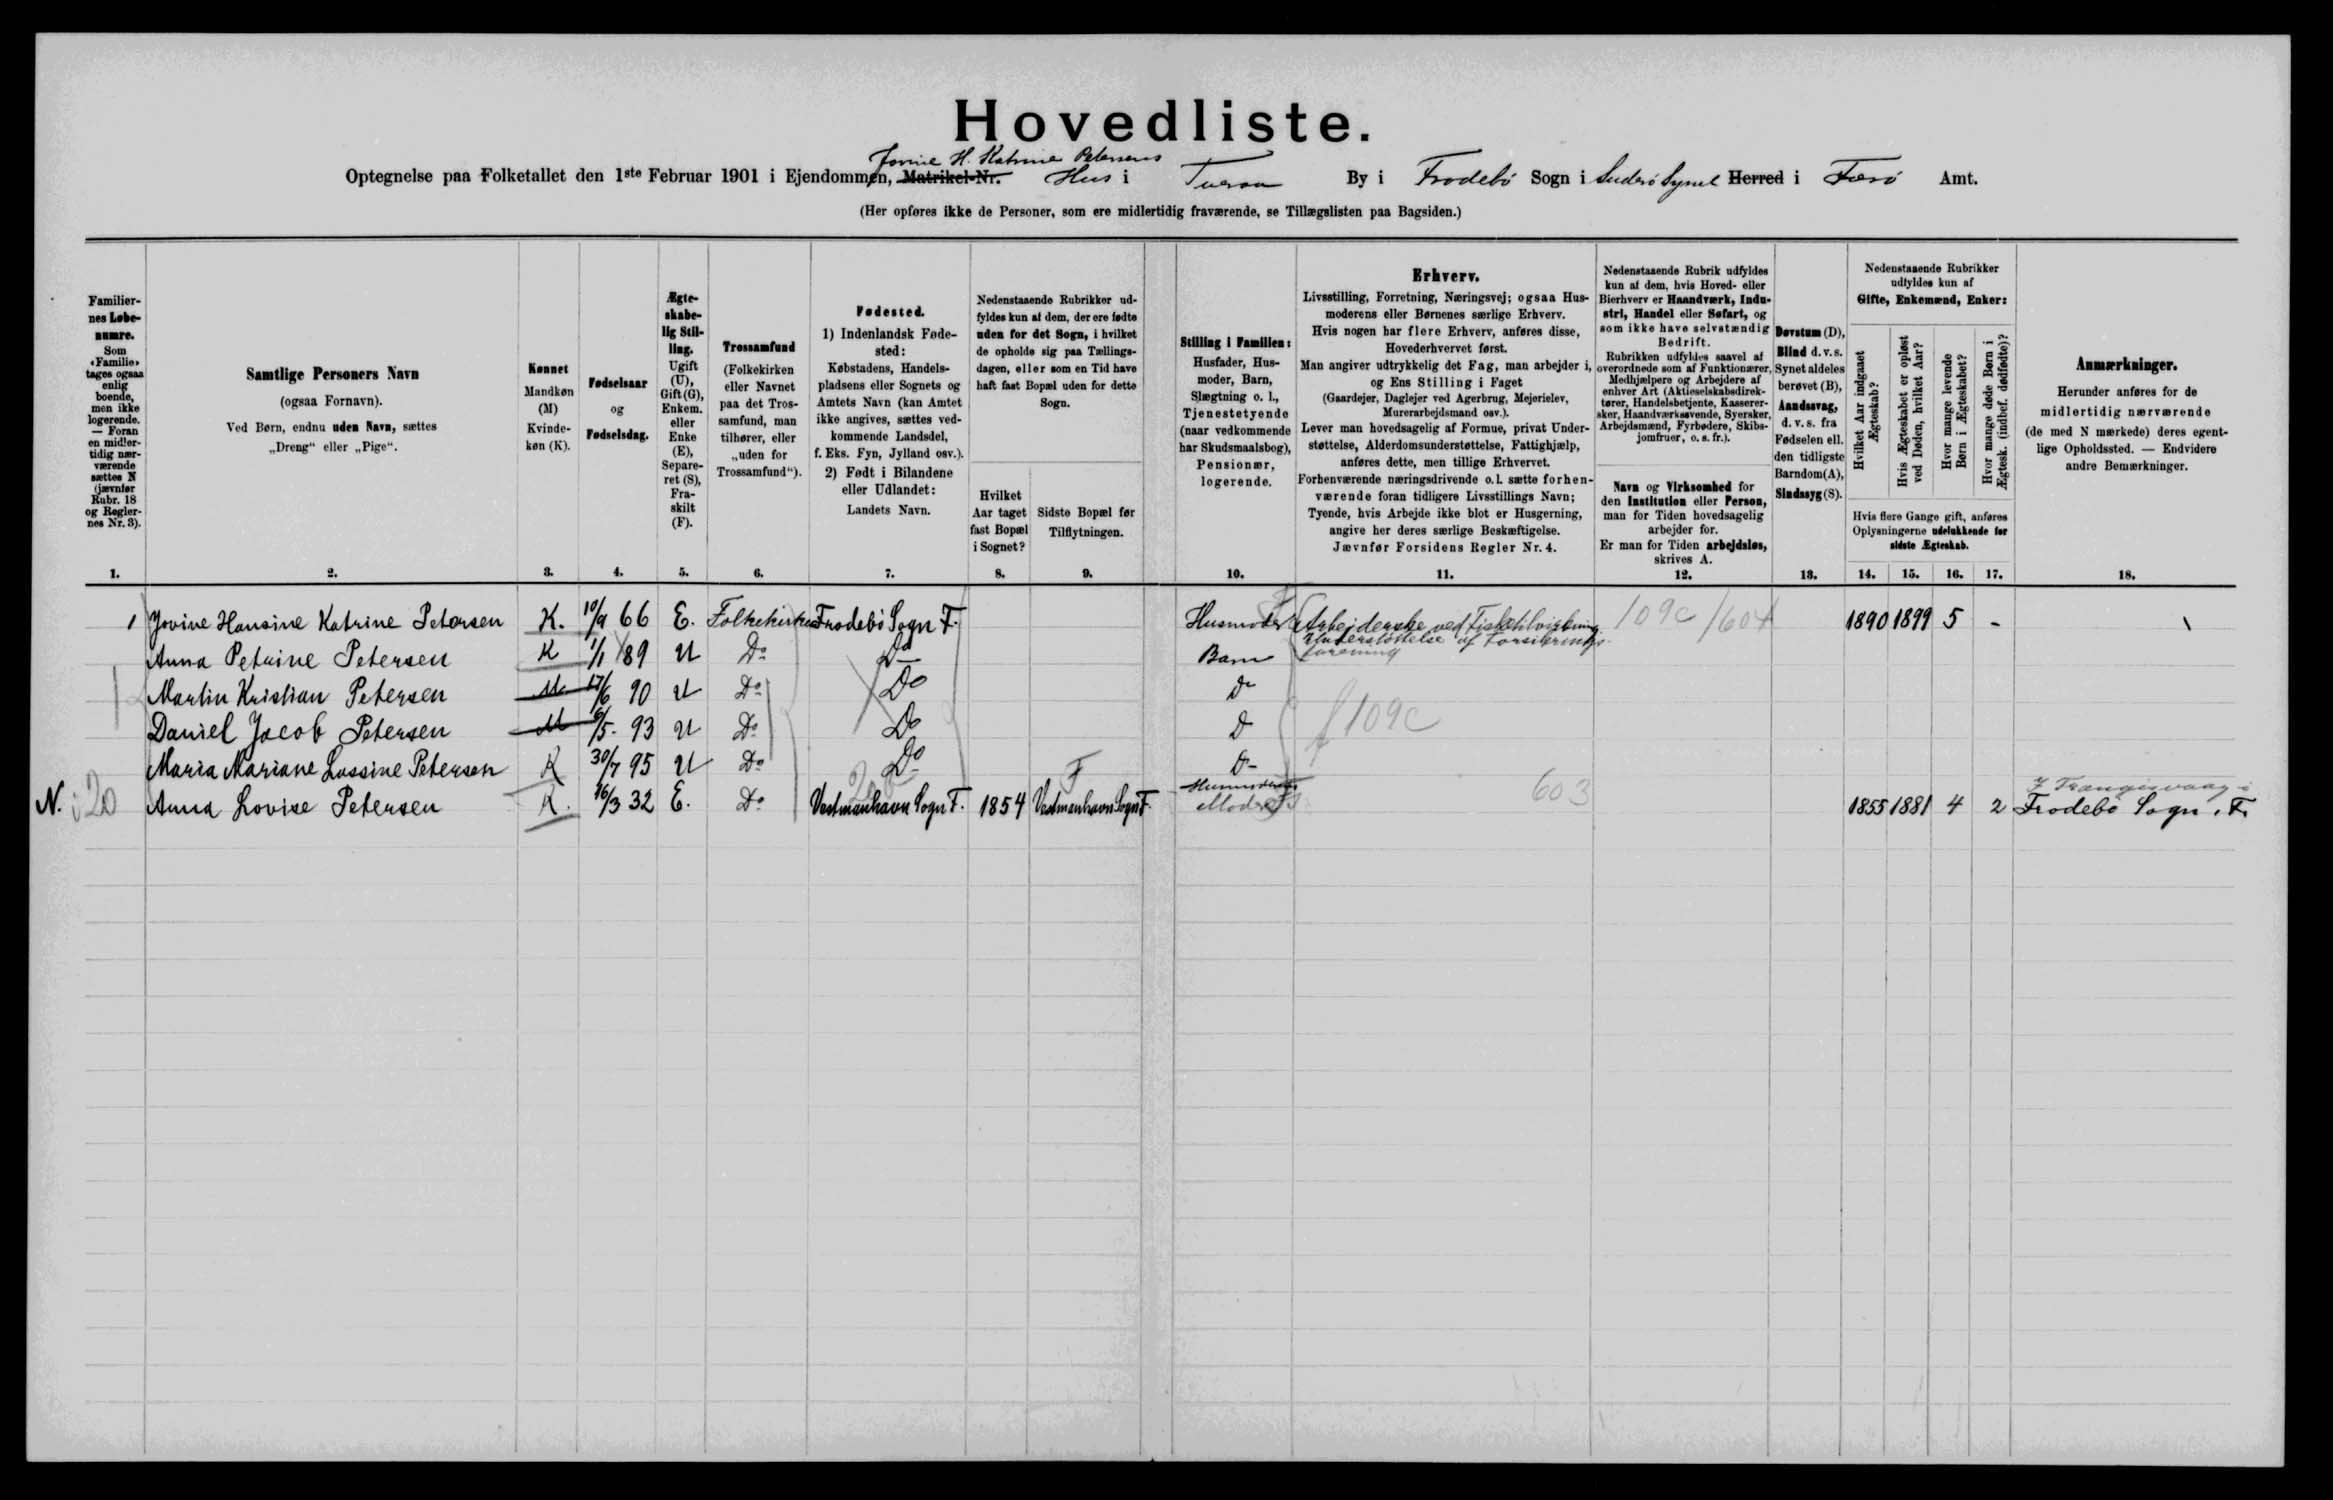 Hovedliste.
Jovine H. Katrine Petersens
Optegnelse paa Folketallet den 1ste Februar 1901 i Ejendommen, Matrikel-Nr. Hus i Tveraa By i Frodebø Sogn i Suderø Syssel Herred i Færø Amt.
(Her opføres ikke de Personer, som ere midlertidig fraværende, se Tillægslisten paa Bagsiden.)
Familiernes Løbenumre.
Som «Familie» tages ogsaa enlig boende, men ikke logerende. — Foran en midlertidig nærværende sættes N (jævnfør Rubr. 18 og Reglernes Nr. 3).
1.
Samtlige Personers Navn
(ogsaa Fornavn).
Ved Børn, endnu uden Navn, sættes
„Dreng“ eller „Pige“.
2.
Kønnet
Mandkøn
(M)
Kvinde-
køn (K).
3.
Fødselsaar
og
Fødselsdag.
4.
Ægte-
skabe-
lig Stil-
ling.
Ugift
(U),
Gift (G),
Enkem.
eller
Enke
(E),
Separe-
ret (S),
Fra-
skilt
(F).
5.
Trossamfund
(Folkekirken
eller Navnet
paa det Tros-
samfund, man
tilhører, eller
„uden for
Trossamfund“).
6.
Fødested.
1) Indenlandsk Føde-
sted:
Købstadens, Handels-
pladsens eller Sognets og
Amtets Navn (kan Amtet
ikke angives, sættes ved-
kommende Landsdel,
f. Eks. Fyn, Jylland osv.).
2) Født i Bilandene
eller Udlandet:
Landets Navn.
7.
Nedenstaaende Rubrikker ud-
fyldes kun af dem, der ere fødte
uden for det Sogn, i hvilket
de opholde sig paa Tællings-
dagen, eller som en Tid have
haft fast Bopæl uden for dette
Sogn.
Hvilket
Aar taget
fast Bopæl
i Sognet?
8.
Sidste Bopæl før
Tilflytningen.
9.
Stilling i Familien:
Husfader, Hus-
moder, Barn,
Slægtning o. l.,
Tjenestetyende
(naar vedkommende
har Skudsmaalsbog),
Pensionær,
logerende.
10.
Erhverv.
Livsstilling, Forretning, Næringsvej; ogsaa Hus-
moderens eller Børnenes særlige Erhverv.
Hvis nogen har flere Erhverv, anføres disse,
Hovederhvervet først.
Man angiver udtrykkelig det Fag, man arbejder i,
og Ens Stilling i Faget
(Gaardejer, Daglejer ved Agerbrug, Mejerielev,
Murerarbejdsmand osv.).
Lever man hovedsagelig af Formue, privat Under-
støttelse, Alderdomsunderstøttelse, Fattighjælp,
anføres dette, men tillige Erhvervet.
Forhenværende næringsdrivende o. l. sætte forhen-
værende foran tidligere Livsstillings Navn;
Tyende, hvis Arbejde ikke blot er Husgerning,
angive her deres særlige Beskæftigelse.
Jævnfør Forsidens Regler Nr. 4.
11.
Nedenstaaende Rubrik udfyldes
kun af dem, hvis Hoved- eller
Bierhverv er Haandværk, Indu-
stri, Handel eller Søfart, og
som ikke have selvstændig
Bedrift.
Rubrikken udfyldes saavel af
overordnede som af Funktionærer,
Medhjælpere og Arbejdere af
enhver Art (Aktieselskabsdirek-
tører, Handelsbetjente, Kasserer-
sker, Haandværkssvende, Syersker,
Arbejdsmænd, Fyrbødere, Skibs-
jomfruer, o. s. fr.).
Navn og Virksomhed for
den Institution eller Person,
man for Tiden hovedsagelig
arbejder for.
Er man for Tiden arbejdsløs,
skrives A.
12.
Døvstum (D),
Blind d. v. s.
Synet aldeles
berøvet (B),
Aandssvag,
d. v. s. fra
Fødselen ell.
den tidligste
Barndom (A),
Sindssyg (S).
13.
Nedenstaaende Rubrikker
udfyldes kun af
Gifte, Enkemænd, Enker:
Hvilket Aar indgaaet
Ægteskab?
Hvis Ægteskabet er opløst
ved Døden, hvilket Aar?
Hvor mange levende
Børn i Ægteskabet?
Hvor mange døde Børn i
Ægtesk. (indbef. dødfødte)?
Hvis flere Gange gift, anføres
Oplysningerne udelukkende for
sidste Ægteskab.
14. 15. 16. 17.
Anmærkninger.
Herunder anføres for de
midlertidig nærværende
(de med N mærkede) deres egent-
lige Opholdssted. — Endvidere
andre Bemærkninger.
18.
1 Jovine Hansine Katrine Petersen K. 10/9 66 E. Folkekirken Frodebø Sogn F. Husmoder Arbejderske ved Fisketilvirkning 109c /604 1890 1899 5 -
Understøttelse af Forsikrings-
forening
Anna Petrine Petersen K 1/1 89 U Do Do Barn
Martin Kristian Petersen M 17/6 90 U Do Do Do
Daniel Jacob Petersen M 6/5 93 U Do Do D f 109c
Maria Mariane Lassine Petersen K 30/7 95 U Do Do D-
N. 20 Anna Lovise Petersen K. 16/3 32 E. Do Vestmanhavn Sogn F. 1854 Vestmanhavn Sogn F. Husmoderens Moder 603 1855 1881 4 2 I Trangisvaag i
Frodebø Sogn, F.